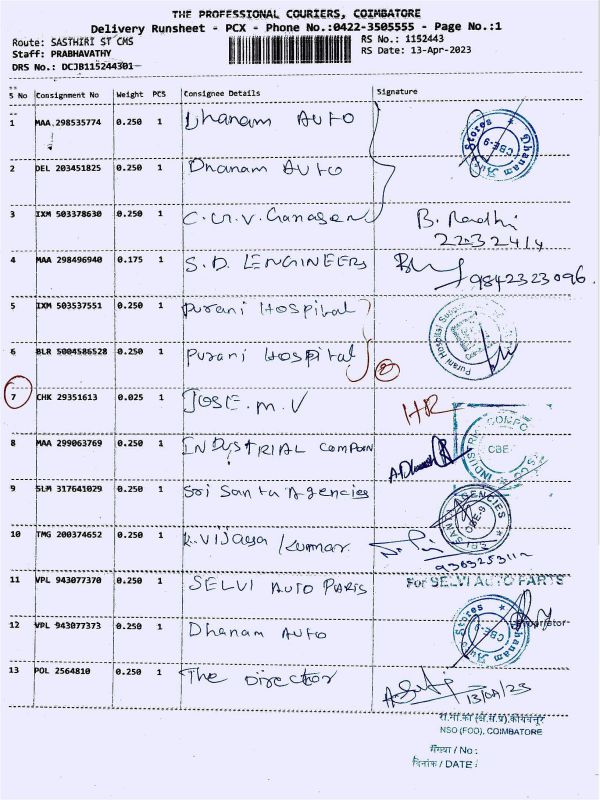 THE PROFESSIONAL COURIERS, COIMBATORE
Delivery Runsheet - PCX - Phone No.:0422-3505555 - Page No.:1
Route: SASTHIRI ST CMS
RS No.: 1152443
Staff: PRABHAVATHY
RS Date: 13-Apr-2023
DRS No.: DCJB115244301
S No Consignment No Weight PCS Consignee Details Signature
1 MAA 298535774 0.250 1 Dhanam AUTO
Dhanam Auto Stores CBE-9
2 DEL 203451825 0.250 1 Dhanam AUTO
3 IXM 503378630 0.250 1 C.U.V. Ganasan B. Radhi
2232414
4 MAA 298496940 0.175 1 S.D. ENGINEERS
9842323096.
5 IXM 503537551 0.250 1 Purani Hospital
Purani Hospital
6 BLR 5004586528 0.250 1 Purani Hospital 2
7 CHK 29351613 0.025 1 JOSE.M.V HR
8 MAA 299063769 0.250 1 INDUSTRIAL COMPON
INDUSTRIAL COMPO CBE-
9 SLM 317641029 0.250 1 Sri Santa Agencies
SRI SAN AGENCIES CBE-9
10 TMG 200374652 0.250 1 K. Vijaya Kumar
11 VPL 943077370 0.250 1 SELVI AUTO PARTS For SELVI AUTO PARTS
12 VPL 943077373 0.250 1 Dhanam AUTO
Proprietor
Dhanam Auto Stores CBE-9
13 POL 2564810 0.250 1 The Director
13/04/23
NSO (FOD), COIMBATORE
संख्या / No :
दिनांक / DATE :